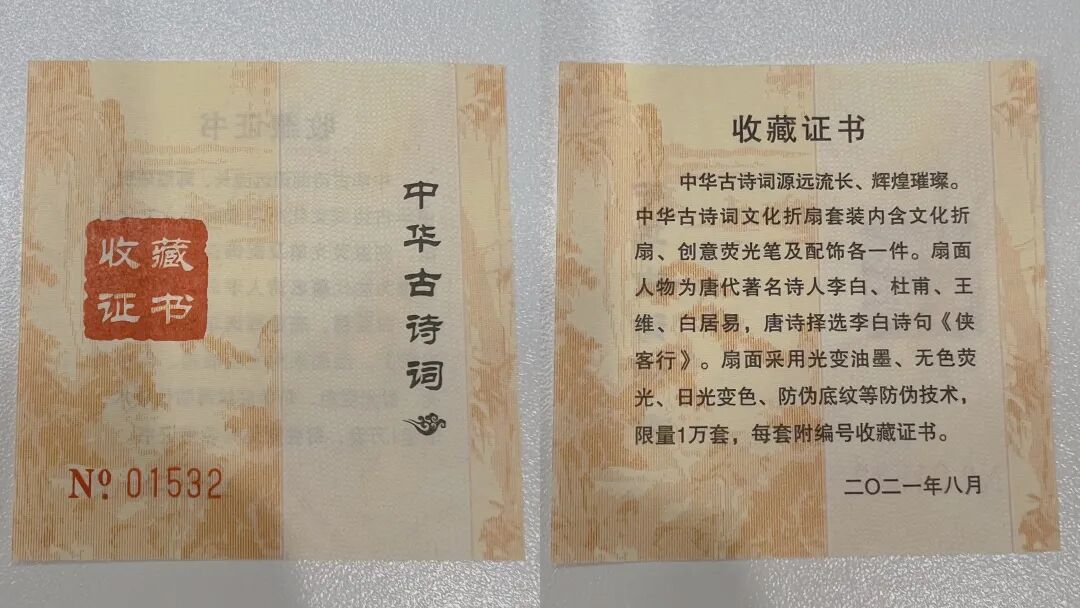 收藏
证书
中华古诗词
Nº 01532
收藏证书
中华古诗词源远流长、辉煌璀璨。
中华古诗词文化折扇套装内含文化折
扇、创意荧光笔及配饰各一件。扇面
人物为唐代著名诗人李白、杜甫、王
维、白居易，唐诗择选李白诗句《侠
客行》。扇面采用光变油墨、无色荧
光、日光变色、防伪底纹等防伪技术，
限量1万套，每套附编号收藏证书。
二〇二一年八月